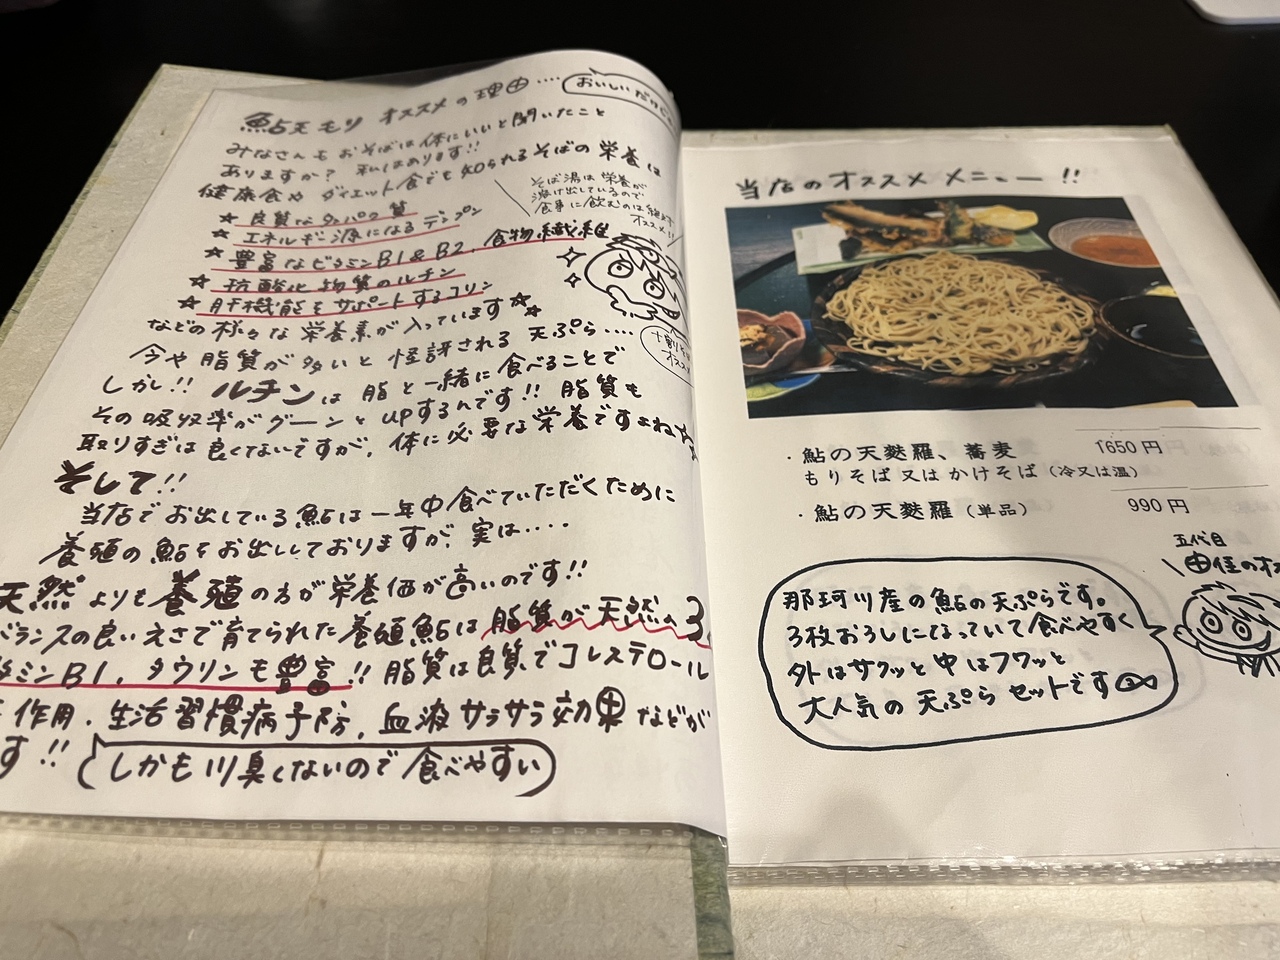 鮎天もり オススメの理由‥‥
おいしいだけじ
みなさんもおそばは体にいいと聞いたこと
ありますか? 私はあります!!
健康食やダイエット食でも知られるそばの栄養は
そば湯は栄養が
溶け出しているので
食事に飲むのは
オススメ!!
★ 良質なタンパク質
★ エネルギー源になるデンプン
★ 豊富なビタミンB1&B2、食物繊維
★ 抗酸化物質のルチン
★ 肝機能をサポートするコリン
などの様々な栄養素が入っています☆
十割そば
オススメ
今や脂質が多いと怪訝される天ぷら‥‥
しかし!! ルチンは脂と一緒に食べることで
その吸収率がグーンとupするんです!! 脂質も
取りすぎは良くないですが、体に必要な栄養ですよね☆
そして!!
当店でお出ししている鮎は一年中食べていただくために
養殖の鮎をお出ししておりますが、実は‥‥
天然よりも養殖の方が栄養価が高いのです!!
バランスの良いえさで育てられた養殖鮎は脂質が天然の3
タミンB1、タウリンも豊富!! 脂質は良質でコレステロール
作用、生活習慣病予防、血液サラサラ効果などが
す!!
しかも川臭くないので食べやすい
当店のオススメメニュー!!
・鮎の天麩羅、蕎麦 1650円
もりそば又はかけそば(冷又は温)
・鮎の天麩羅(単品) 990円
五代目
由佳のオス
那珂川産の鮎の天ぷらです。
3枚おろしになっていて食べやすく
外はサクッと中はフワッと
大人気の天ぷらセットです